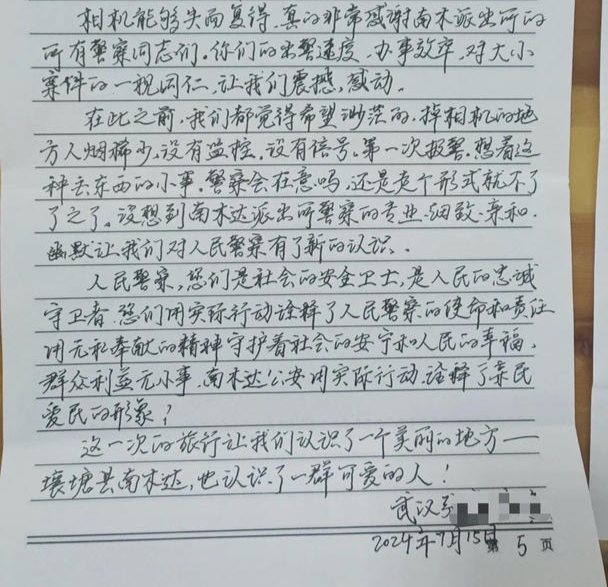 相机能够失而复得,真的非常感谢南木派出所的
所有警察同志们。你们的出警速度、办事效率、对大小
案件的一视同仁,让我们震撼,感动。
在此之前,我们都觉得希望渺茫的,掉相机的地
方人烟稀少,没有监控,没有信号。第一次报警,想着这
种丢东西的小事,警察会在意吗,还是走个形式就不了
了之了。没想到南木达派出所警察的专业、细致、亲和、
幽默让我们对人民警察有了新的认识、
人民警察,您们是社会的安全卫士,是人民的忠诚
守卫者.您们用实际行动诠释了人民警察的使命和责任
用无私奉献的精神守护着社会的安宁和人民的幸福,
群众利益无小事,南木达公安用实际行动,诠释了亲民
爱民的形象!
这一次的旅行让我们认识了一个美丽的地方——
壤塘县南木达,也认识了一群可爱的人!
武汉
2024年7月15日
第 5 页